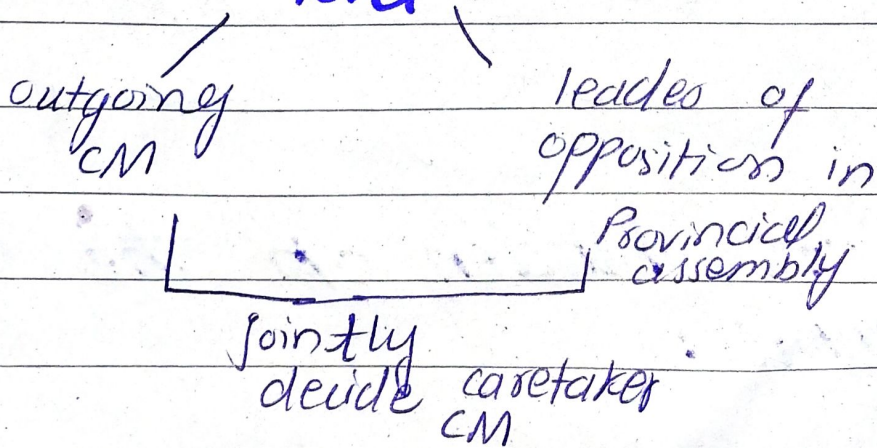 outgoing
CM
leader of
opposition in
Provincial
assembly
jointly
decide caretaker
CM